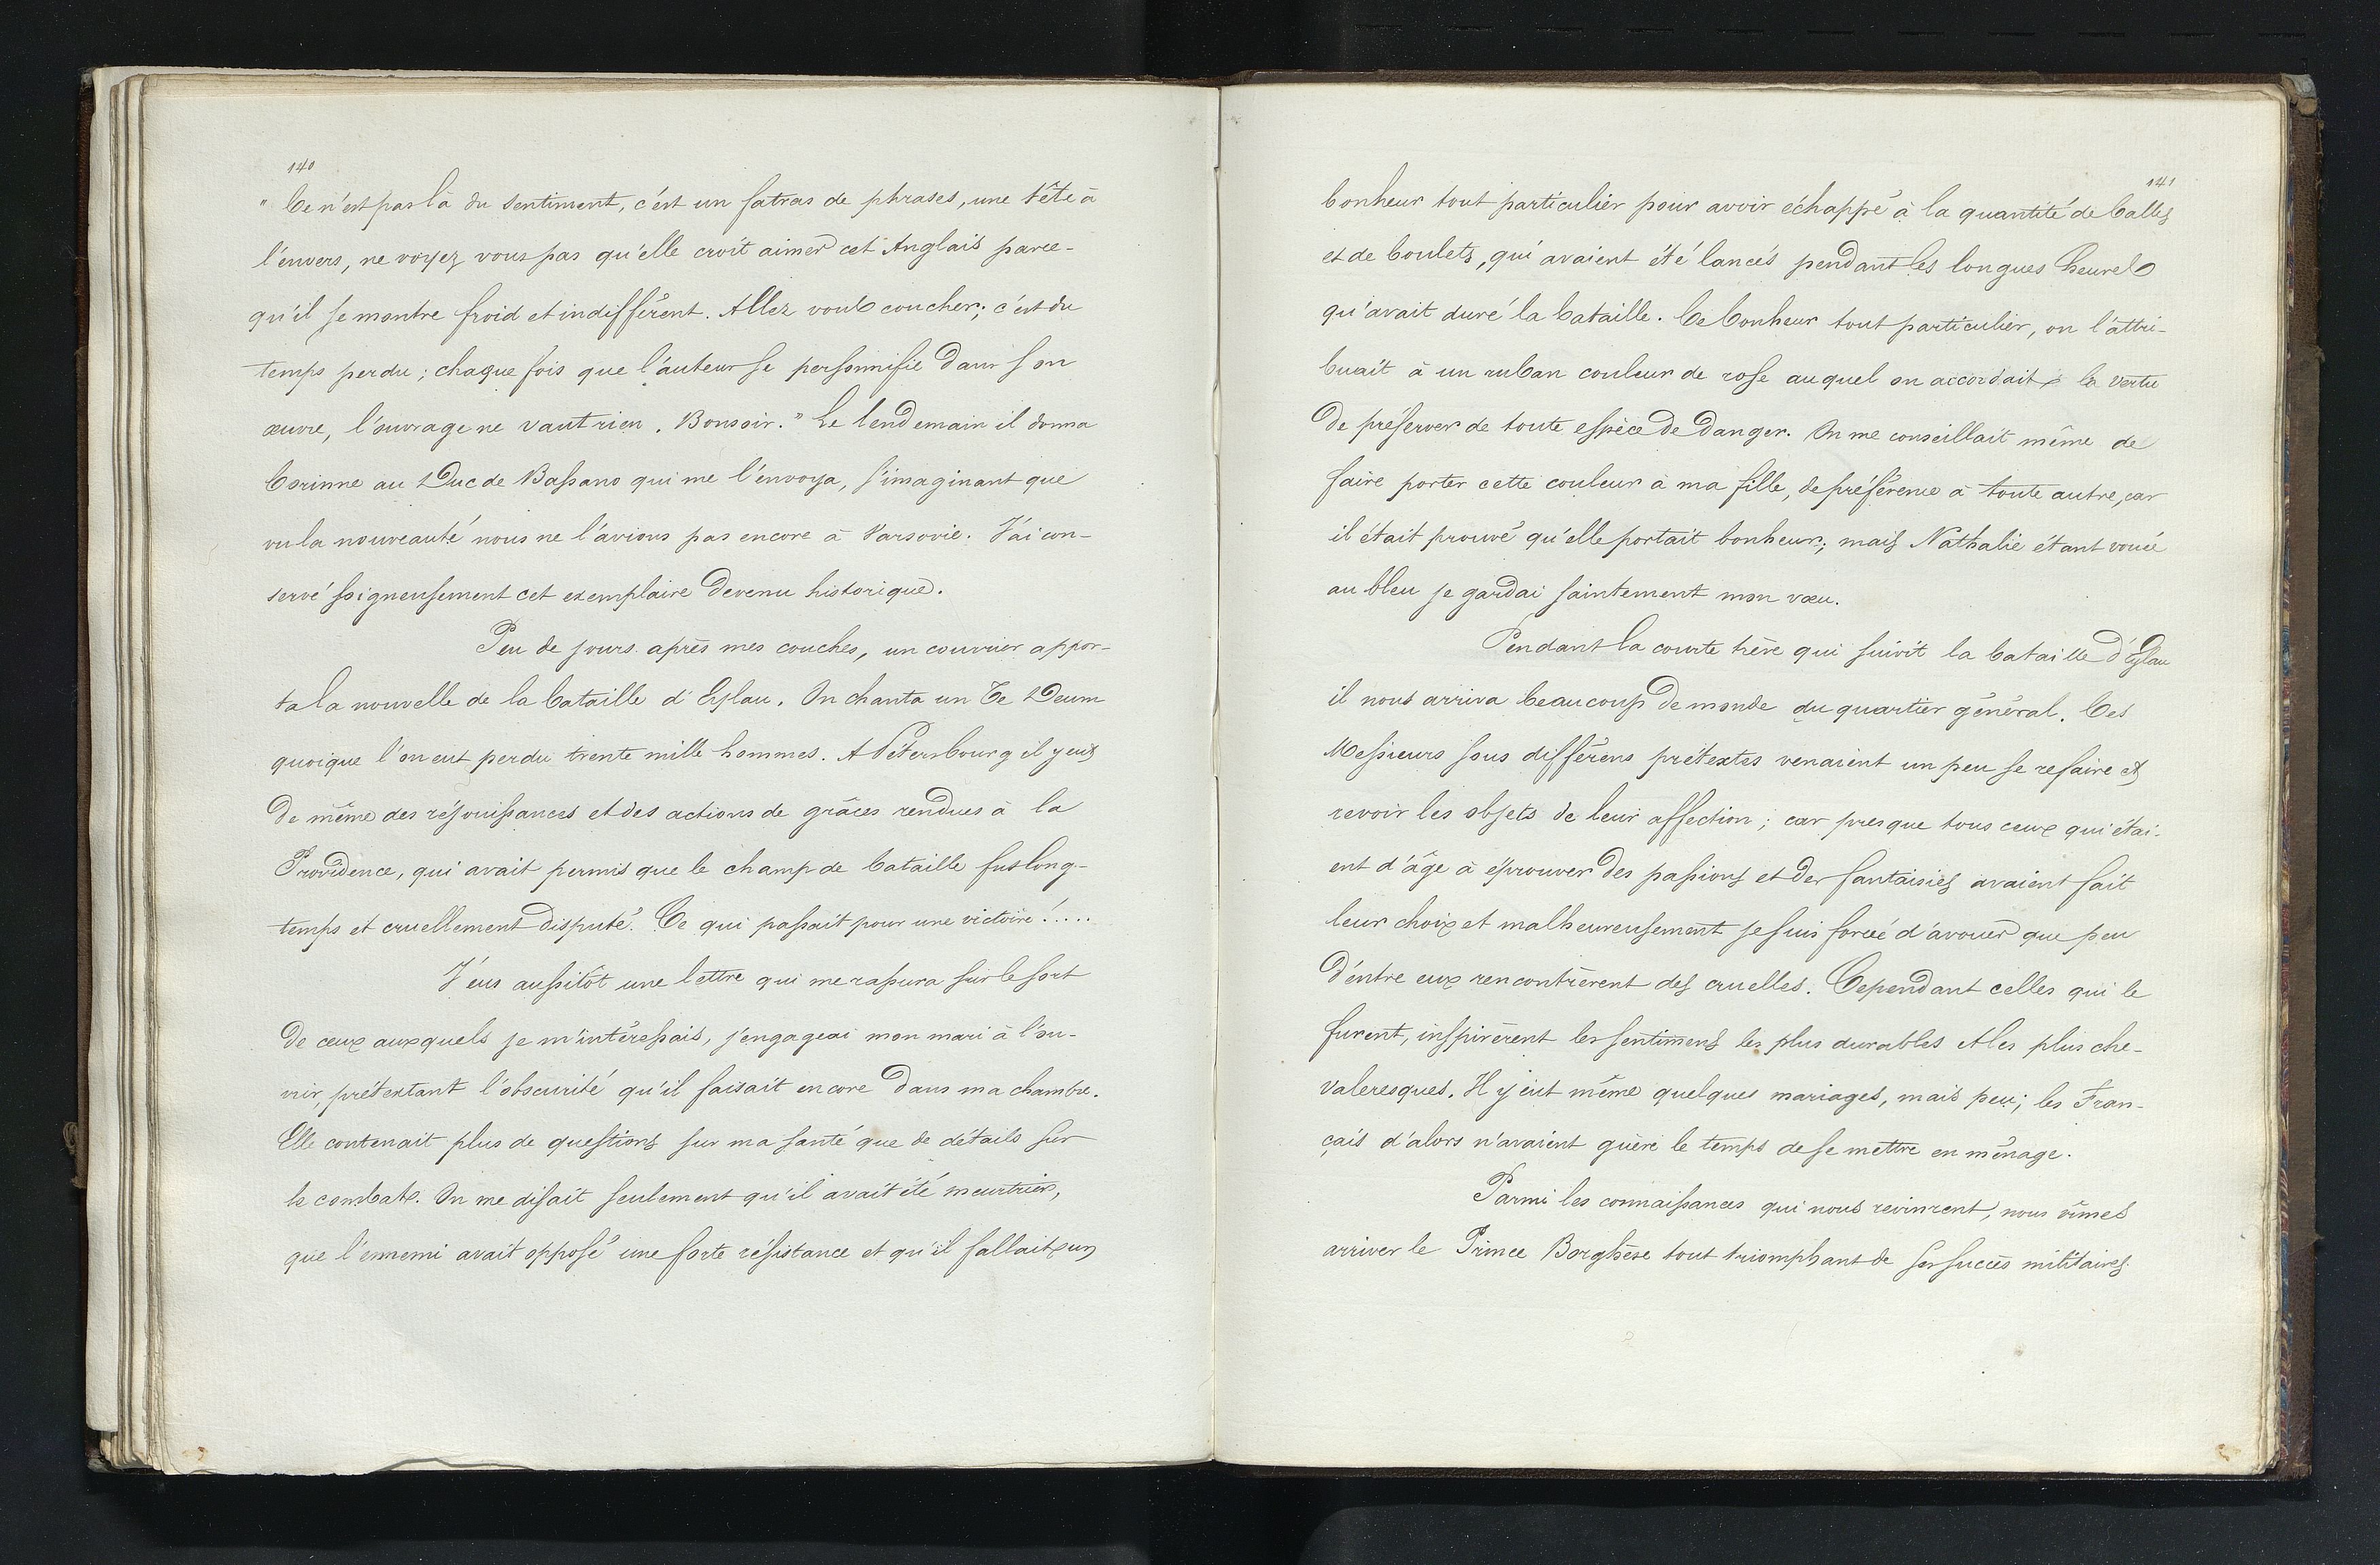 140
" Ce n'est pas là du sentiment, c'est un fatras de phrases, une tête à
l'envers, ne voyez vous pas qu'elle croit aimer cet Anglais parce-
qu'il se montre froid et indifférent. Allez vous coucher; c'est du
temps perdu; chaque fois que l'auteur se personnifie dans son
œuvre, l'ouvrage ne vaut rien. Bonsoir." Le lendemain il donna
Corinne au Duc de Bassano qui me l'envoya, s'imaginant que
vu la nouveauté nous ne l'avions pas encore à Varsovie. J'ai con-
servé soigneusement cet exemplaire devenu historique.
Peu de jours après mes couches, un courrier appor-
ta la nouvelle de la bataille d'Eylau. On chanta un Te Deum
quoique l'on eut perdu trente mille hommes. A Pétersbourg il y eut
de même des réjouissances et des actions de grâces rendues à la
Providence, qui avait permis que le champ de bataille fut long-
temps et cruellement disputé. Ce qui passait pour une victoire!....
J'eus aussitôt une lettre qui me rassura sur le sort
de ceux auxquels je m'intéressais, j'engageai mon mari à l'ou-
vrir, prétextant l'obscurité qu'il faisait encore dans ma chambre.
Elle contenait plus de questions sur ma santé que de détails sur
le combat. On me disait seulement qu'il avait été meurtrier,
que l'ennemi avait opposé une forte résistance et qu'il fallait un
141
bonheur tout particulier pour avoir échappé à la quantité de balles
et de boulets, qui avaient été lancés pendant les longues heures
qu'avait duré la bataille. Ce bonheur tout particulier, on l'attri-
buait à un ruban couleur de rose auquel on accordait la vertu
de préserver de toute espèce de danger. On me conseillait même de
faire porter cette couleur à ma fille, de préférence à toute autre, car
il était prouvé qu'elle portait bonheur; mais Nathalie étant vouée
au bleu je gardai saintement mon vœu.
Pendant la courte trève qui suivit la bataille d'Eylau
il nous arriva beaucoup de monde du quartier général. Ces
Messieurs sous différens prétextes venaient un peu se refaire et
revoir les objets de leur affection; car presque tous ceux qui étai-
ent d'âge à éprouver des passions et des fantaisies avaient fait
leur choix et malheureusement je suis forcée d'avouer que peu
d'entre eux rencontrèrent des cruelles. Cependant celles qui le
furent, inspirèrent les sentimens les plus durables et les plus che-
valeresques. Il y eut même quelques mariages, mais peu; les Fran-
çais d'alors n'avaient guère le temps de se mettre en ménage.
Parmi les connaissances qui nous revinrent, nous vîmes
arriver le Prince Borghèse tout triomphant de ses succès militaires